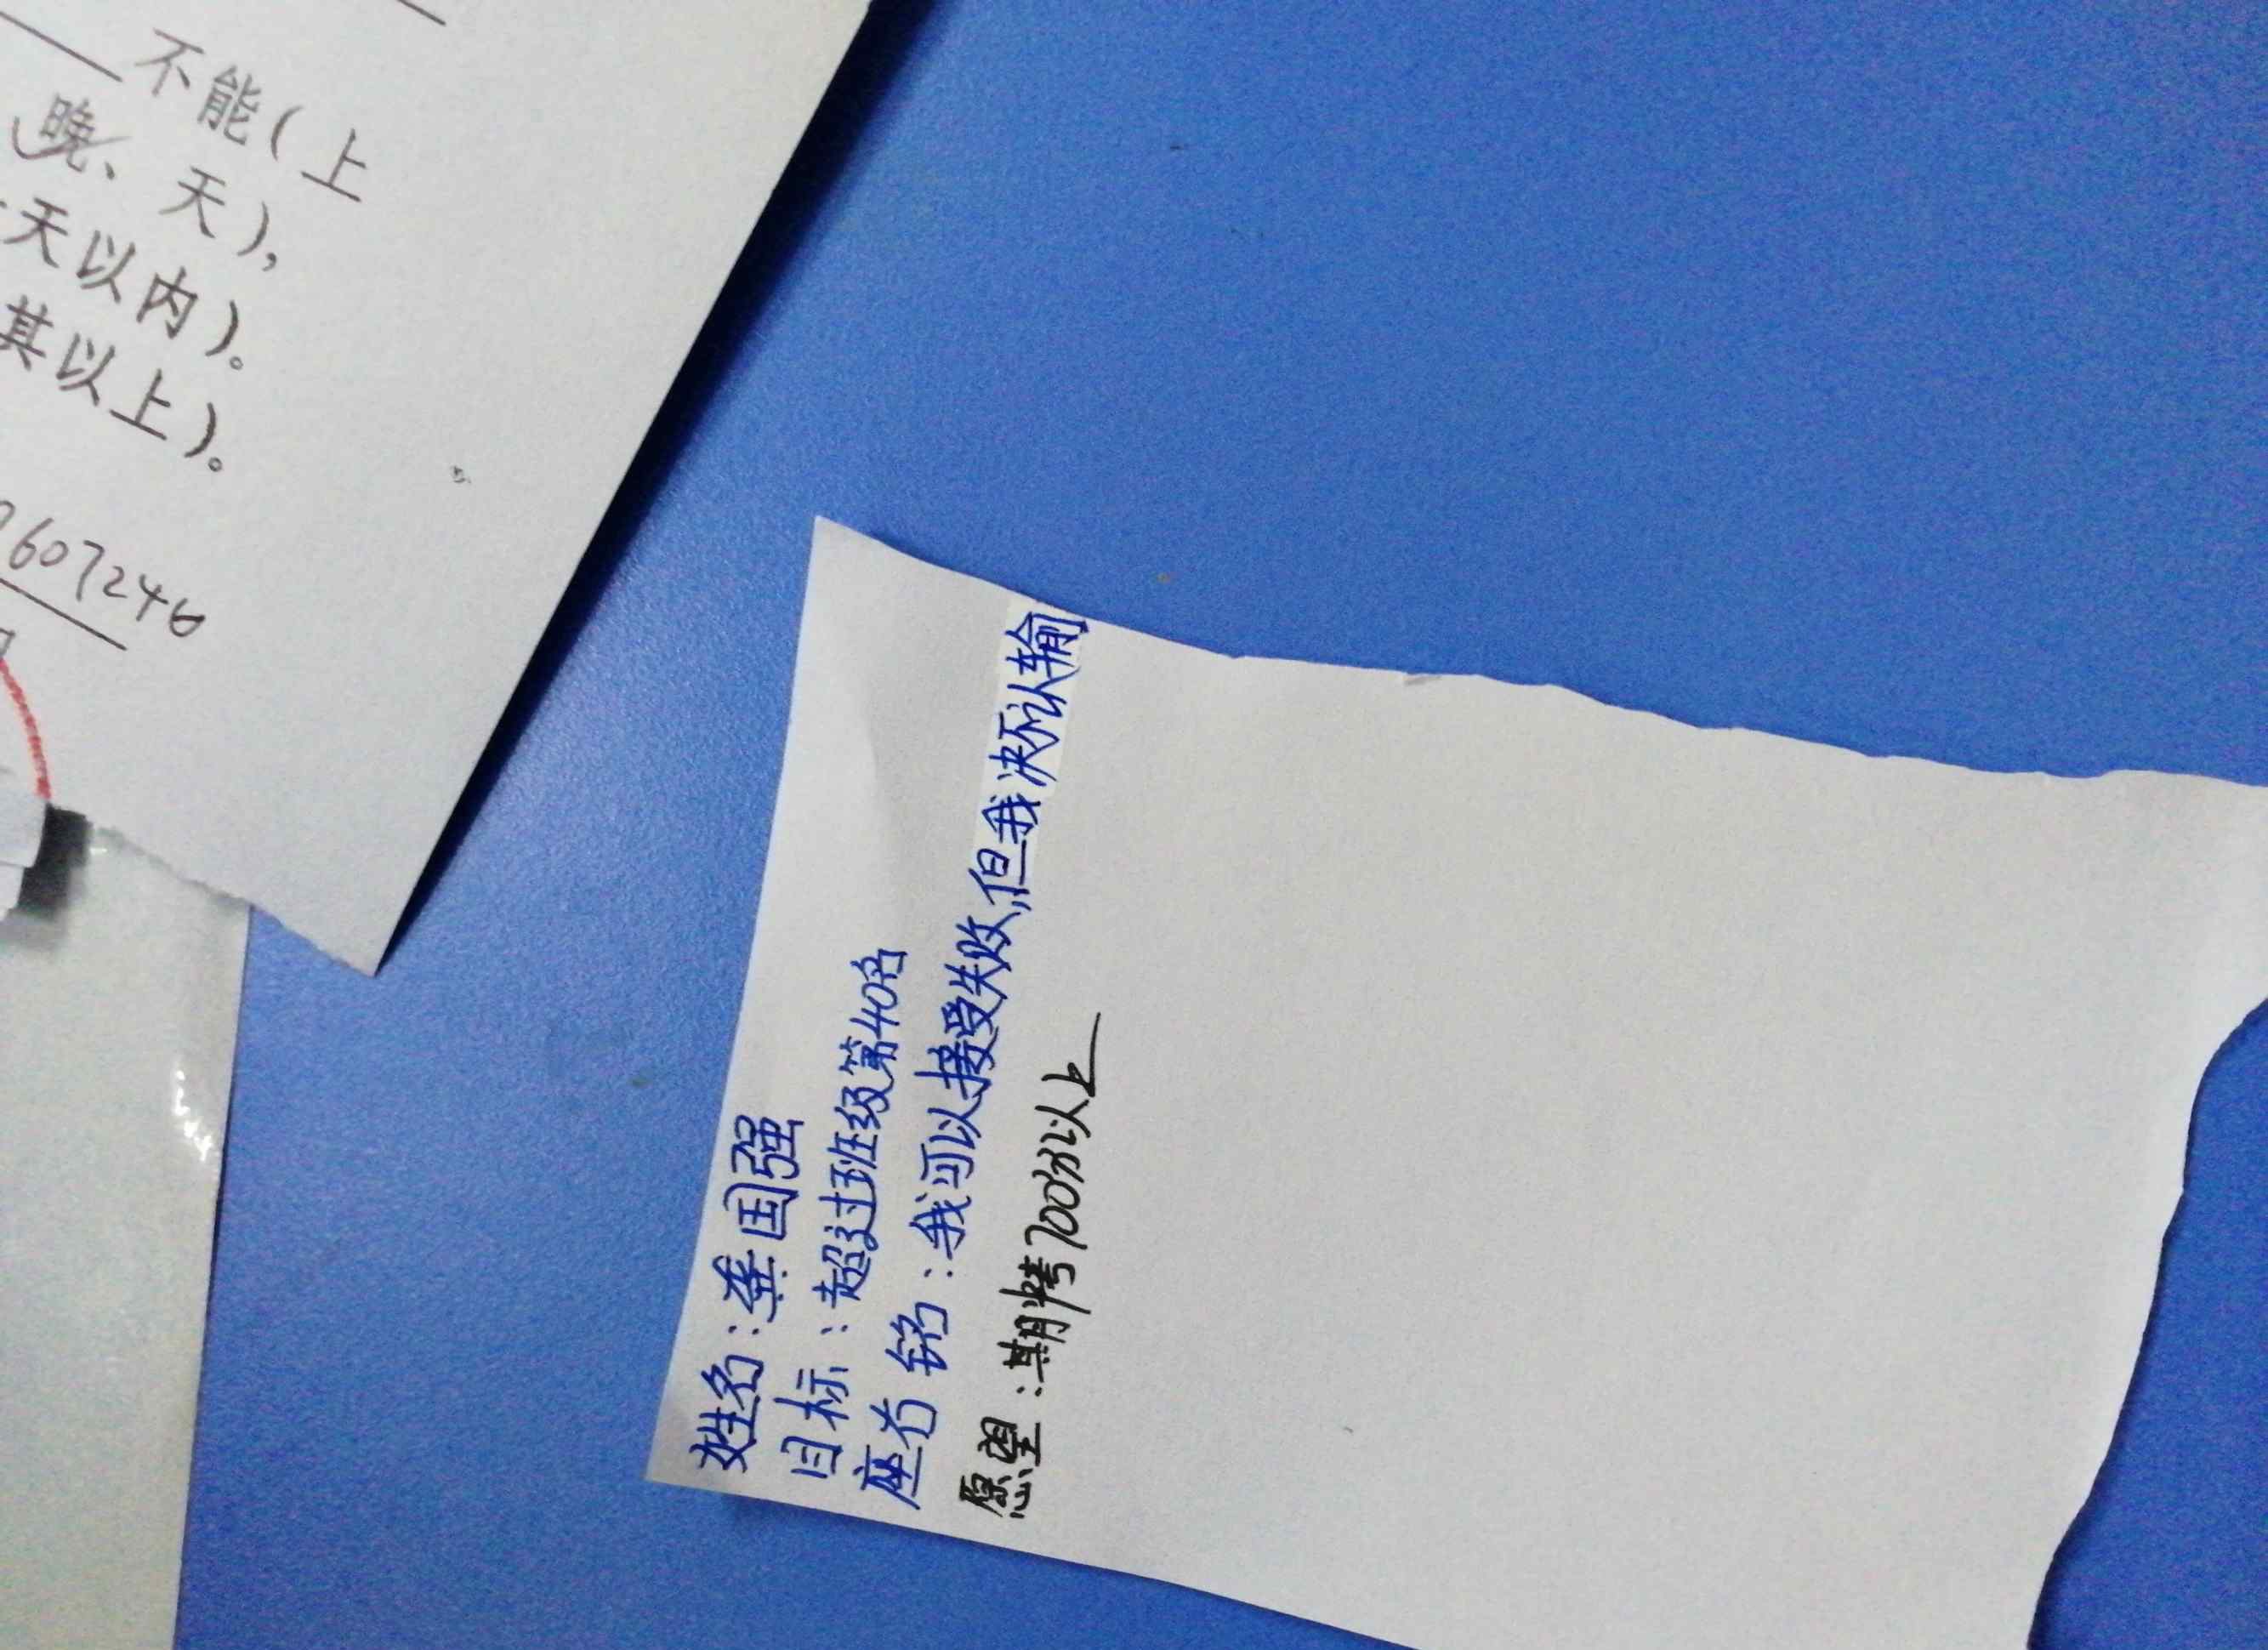 不能(上
晚、天),
天以内)。
其以上)。
607246
姓名:龚国强
目标:超过班级第40名
座右铭:我可以接受失败,但我决不认输
愿望:期中考700分以上